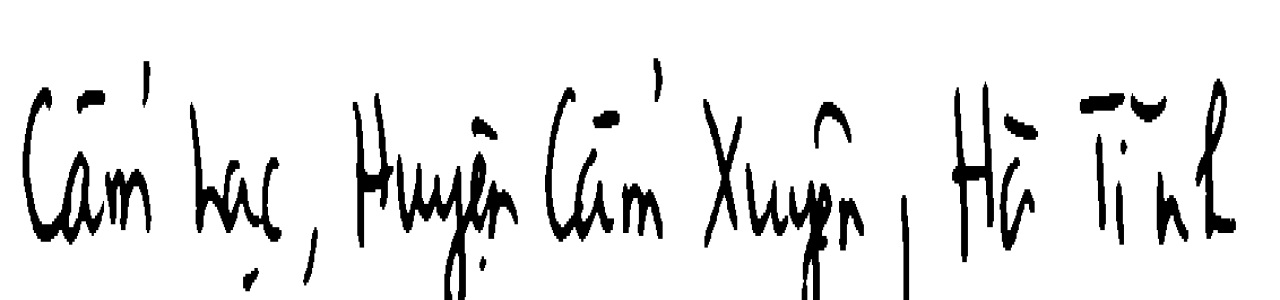 Cẩm Lạc, Huyện Cẩm Xuyên, Hà Tĩnh